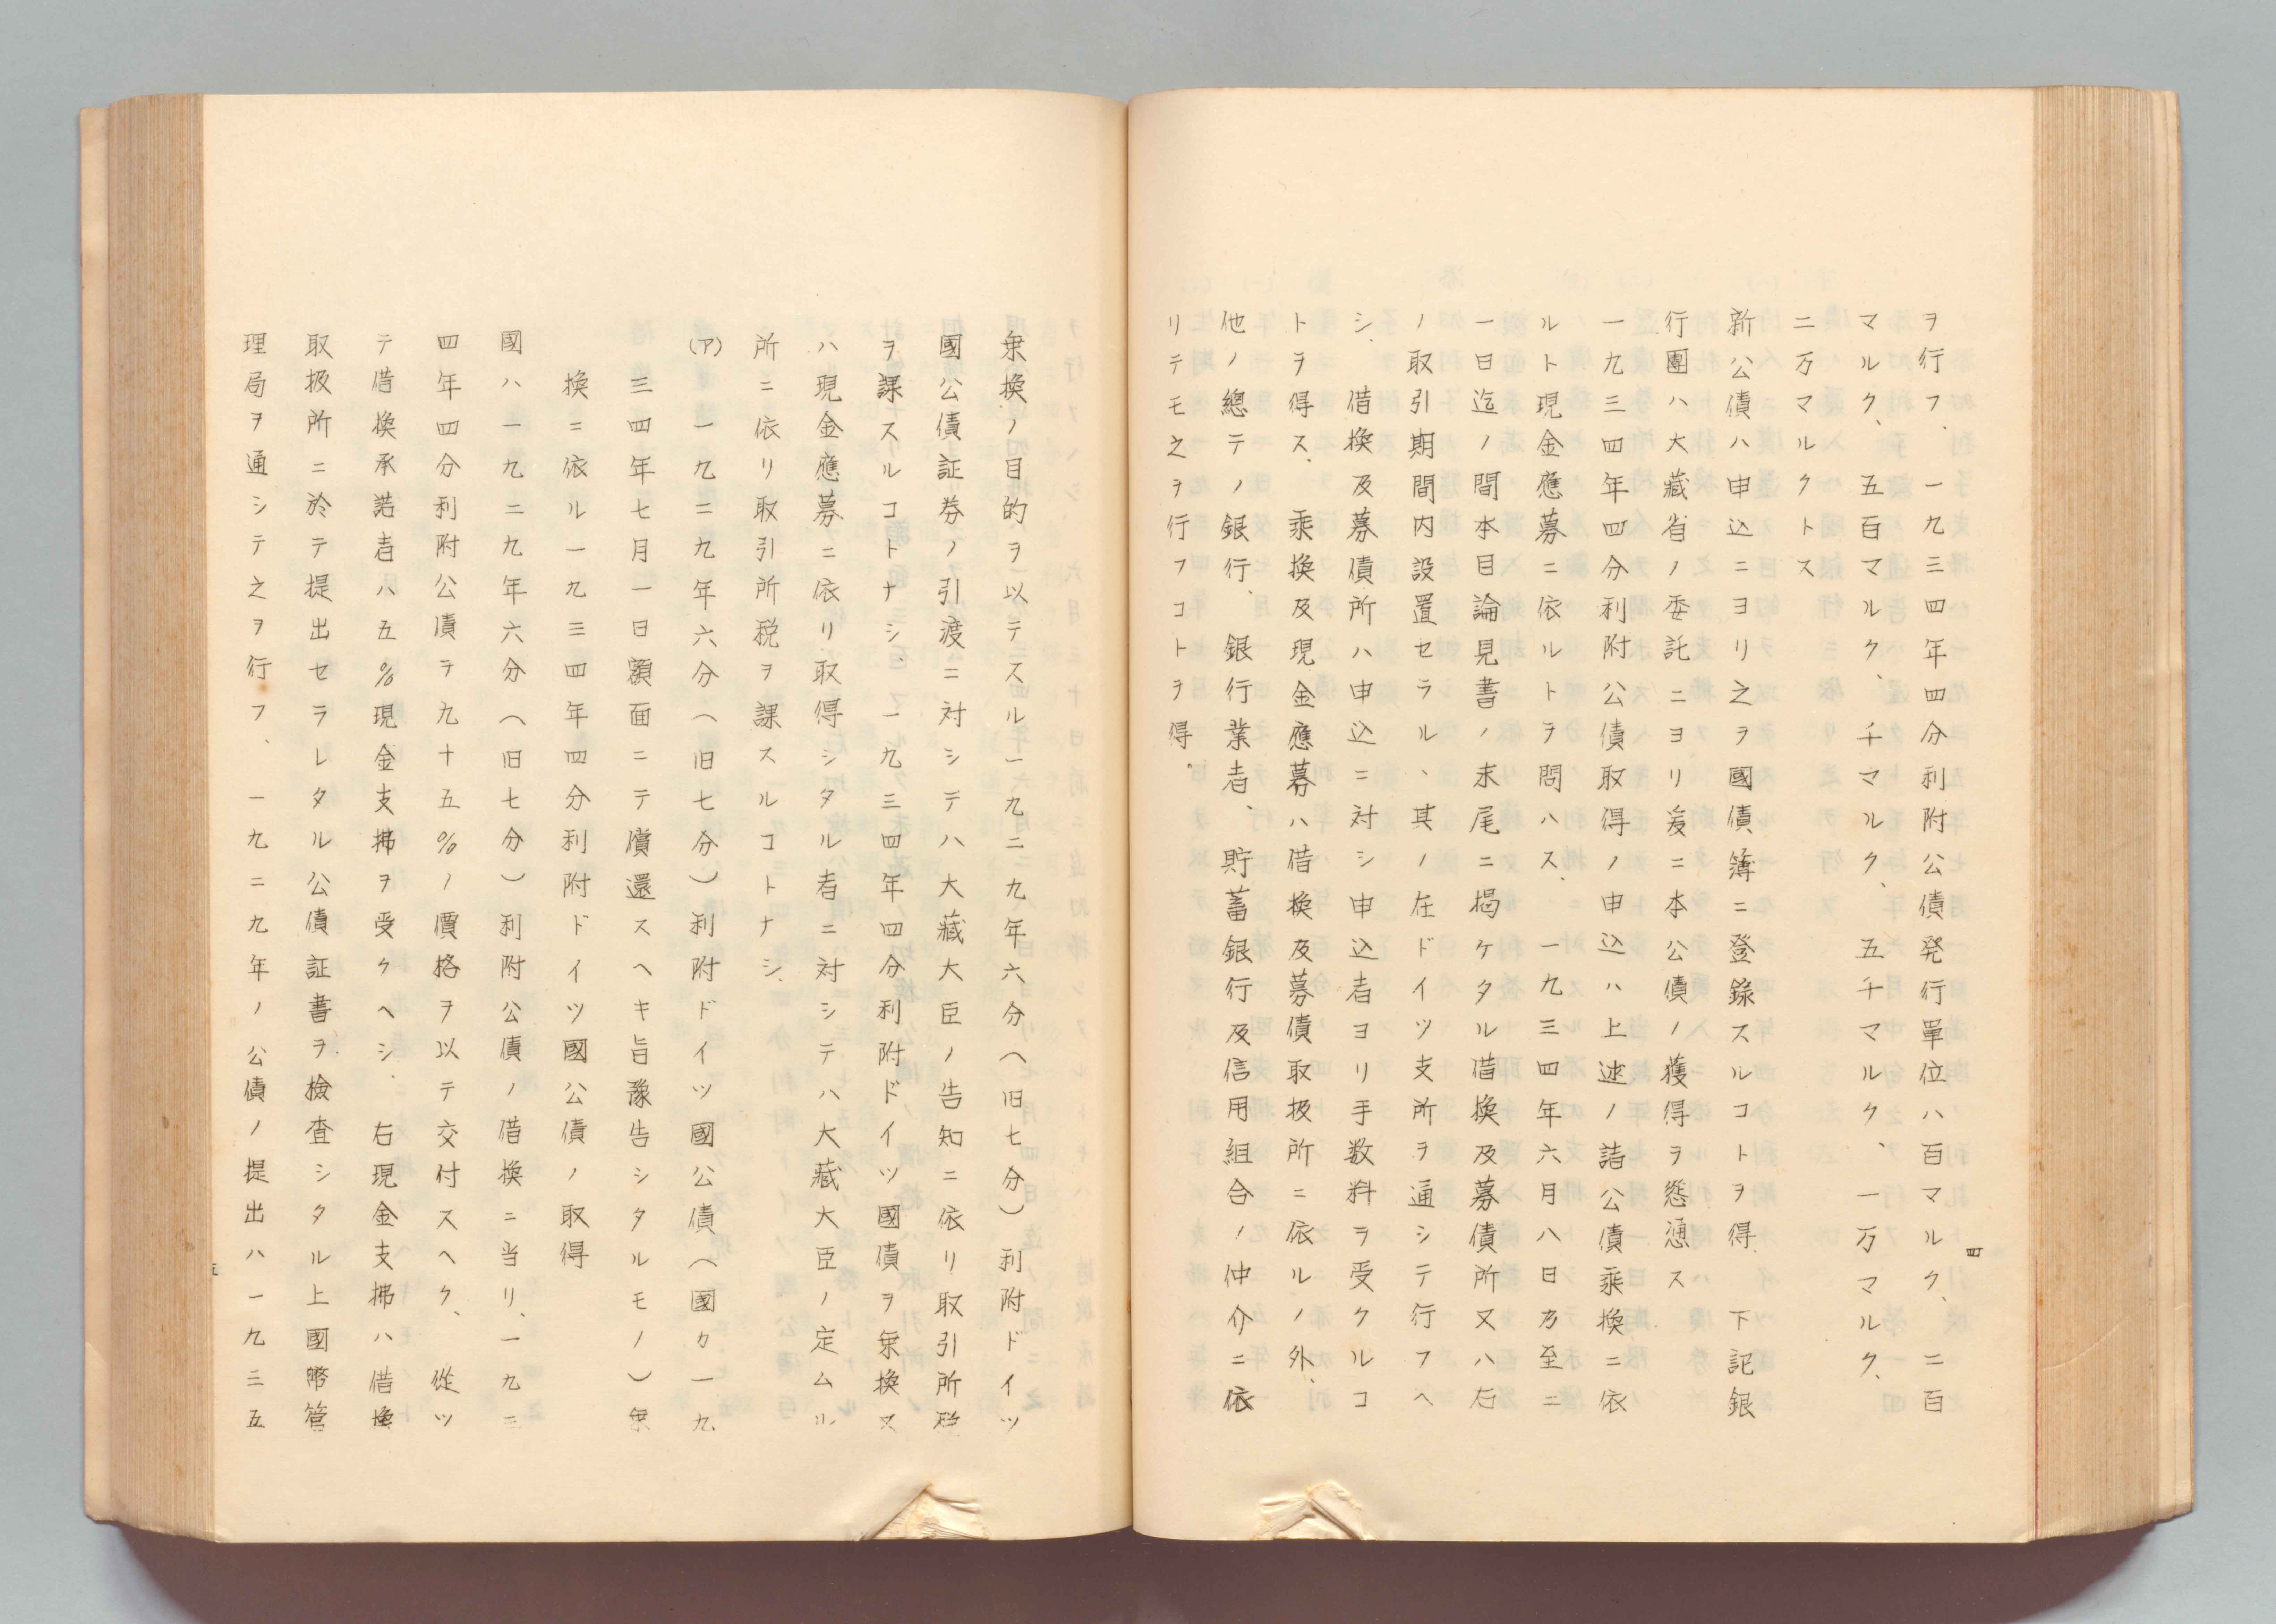 四
ヲ行フ、一九三四年四分利附公債発行單位ハ百マルク、二百
マルク、五百マルク、千マルク、五千マルク、一万マルク、
二万マルクトス
新公債ハ申込ニヨリ之ヲ國債簿ニ登錄スルコトヲ得 下記銀
行團ハ大藏省ノ委託ニヨリ爰ニ本公債ノ獲得ヲ慫慂ス
一九三四年四分利附公債取得ノ申込ハ上述ノ諸公債乘換ニ依
ルト現金應募ニ依ルトヲ問ハス、一九三四年六月八日乃至二
一日迄ノ間本目論見書ノ末尾ニ揭ケタル借換及募債所又ハ右
ノ取引期間内設置セラル、其ノ在ドイツ支所ヲ通シテ行フヘ
シ、借換及募債所ハ申込ニ対シ申込者ヨリ手数料ヲ受クルコ
トヲ得ス、乘換及現金應募ハ借換及募債取扱所ニ依ルノ外、
他ノ總テノ銀行、銀行業者、貯蓄銀行及信用組合ノ仲介ニ依
リテモ之ヲ行フコトヲ得。
乗換ノ目的ヲ以テスル一九二九年六分(旧七分)利附ドイツ
國公債証券ノ引渡ニ対シテハ大藏大臣ノ告知ニ依リ取引所税
ヲ課スルコトナシ、一九三四年四分利附ドイツ國債ヲ乗換又
ハ現金應募ニ依リ取得シタル者ニ対シテハ大藏大臣ノ定ムル
所ニ依リ取引所税ヲ課スルコトナシ、
(ア)一九二九年六分(旧七分)利附ドイツ國公債(國カ一九
三四年七月一日額面ニテ償還スヘキ旨豫告シタルモノ)乗
換ニ依ル一九三四年四分利附ドイツ國公債ノ取得
國ハ一九二九年六分(旧七分)利附公債ノ借換ニ当リ、一九三
四年四分利附公債ヲ九十五%ノ價格ヲ以テ交付スヘク、從ツ
テ借換承諾者ハ五%現金支拂ヲ受クヘシ、右現金支拂ハ借換
取扱所ニ於テ提出セラレタル公債証書ヲ檢査シタル上國幣管
理局ヲ通シテ之ヲ行フ、一九二九年ノ公債ノ提出ハ一九三五
五